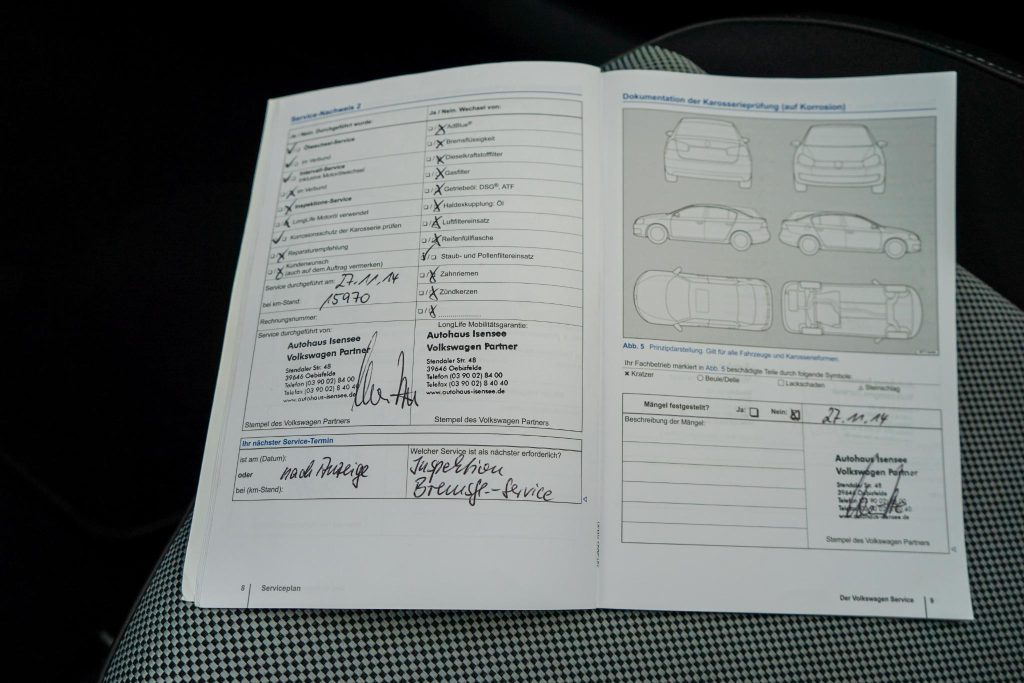 Service-Nachweis 2
Ja / Nein. Durchgeführt wurde:
Ölwechsel-Service
im Verbund
Intervall-Service
inklusive Motorölwechsel
im Verbund
Inspektions-Service
LongLife Motoröl verwendet
Korrosionsschutz der Karosserie prüfen
Reparaturempfehlung
Kundenwunsch
(auch auf dem Auftrag vermerken)
Service durchgeführt am: 27.11.14
bei km-Stand: 15970
Rechnungsnummer:
Service durchgeführt von:
Autohaus Isensee
Volkswagen Partner
Stendaler Str. 48
39646 Oebisfelde
Telefon (03 90 02) 84 00
Telefax (03 90 02) 8 40 40
www.autohaus-isensee.de
Stempel des Volkswagen Partners
Ja / Nein. Wechsel von:
AdBlue®
Bremsflüssigkeit
Dieselkraftstofffilter
Gasfilter
Getriebeöl: DSG®, ATF
Haldexkupplung: Öl
Luftfiltereinsatz
Reifenfüllflasche
Staub- und Pollenfiltereinsatz
Zahnriemen
Zündkerzen
LongLife Mobilitätsgarantie:
Autohaus Isensee
Volkswagen Partner
Stendaler Str. 48
39646 Oebisfelde
Telefon (03 90 02) 84 00
Telefax (03 90 02) 8 40 40
www.autohaus-isensee.de
Stempel des Volkswagen Partners
Ihr nächster Service-Termin
ist am (Datum):
oder nach Anzeige
bei (km-Stand):
Welcher Service ist als nächster erforderlich?
Inspektion
Bremsfl.-Service
8 Serviceplan
Dokumentation der Karosserieprüfung (auf Korrosion)
Abb. 5 Prinzipdarstellung. Gilt für alle Fahrzeuge und Karosserieformen.
Ihr Fachbetrieb markiert in Abb. 5 beschädigte Teile durch folgende Symbole:
Kratzer Beule/Delle Lackschaden Steinschlag
Mängel festgestellt? Ja: Nein: 27.11.14
Beschreibung der Mängel:
Autohaus Isensee
Volkswagen Partner
Stendaler Str. 48
39646 Oebisfelde
www.autohaus-isensee.de
Stempel des Volkswagen Partners
Der Volkswagen Service 9